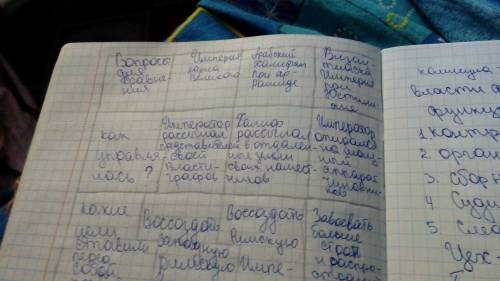 Вопросы
для
сравне-
ния
Империя
Карла
Великого
Арабский
халифат
при
Визан-
тийская
Империя
при
Юстини-
ане
как
управля-
лась?
Император
рассылал
представителей
своей
власти-
графов
Халиф
рассылал
в отдален-
ные земли
своих намест-
ников
Император
опирался
на
аппарат
чиновни-
ков
какие
цели
ставили
перед
собой
Воссоздать
западную
римскую
Воссоздать
Римскую
Импе-
Завоевать
больше
стран
и распро-
власти
1. контр
2. орган
3. сбор н
4. Суди
5. След
Цех-